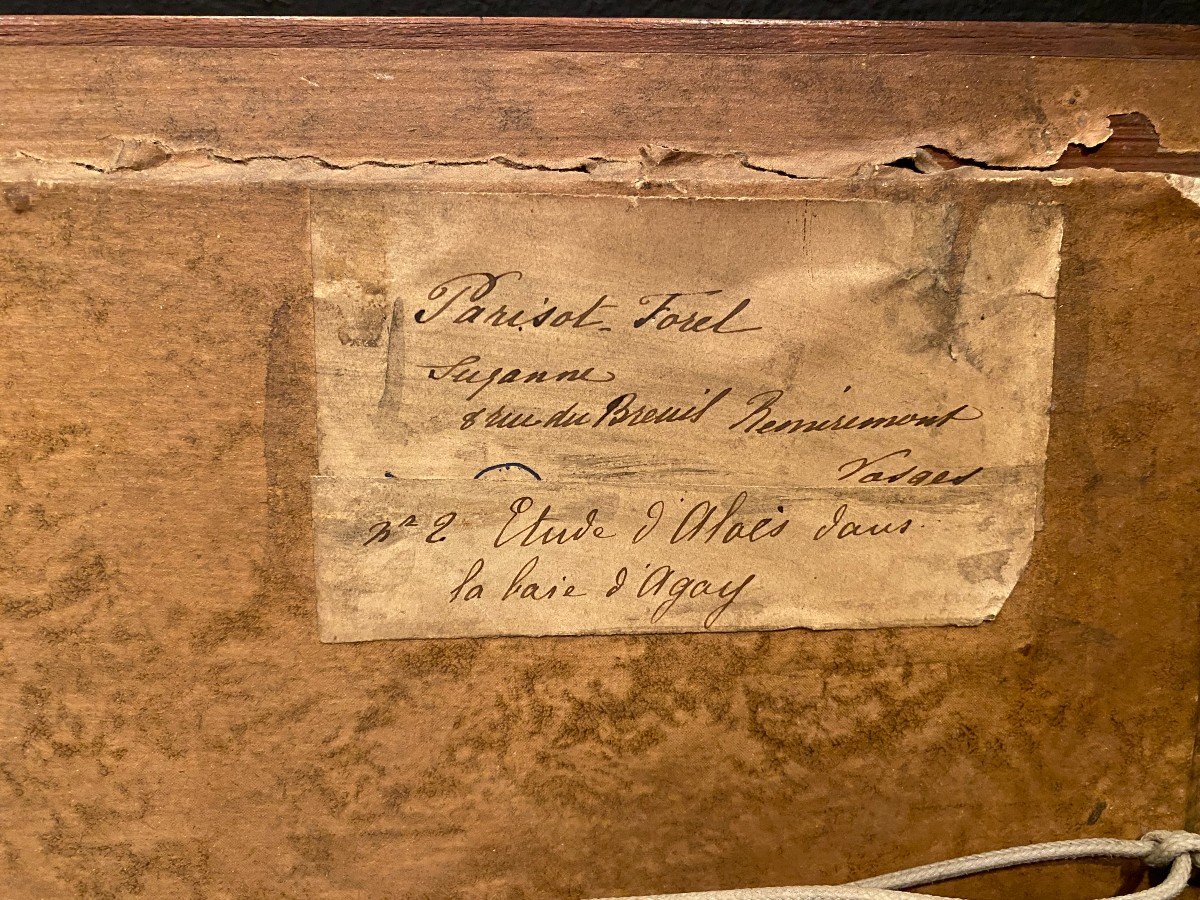 Parisot-Forel
Suzanne
8 rue du Breuil Remiremont
Vosges
nº 2 Etude d'Aloès dans
la baie d'Agay